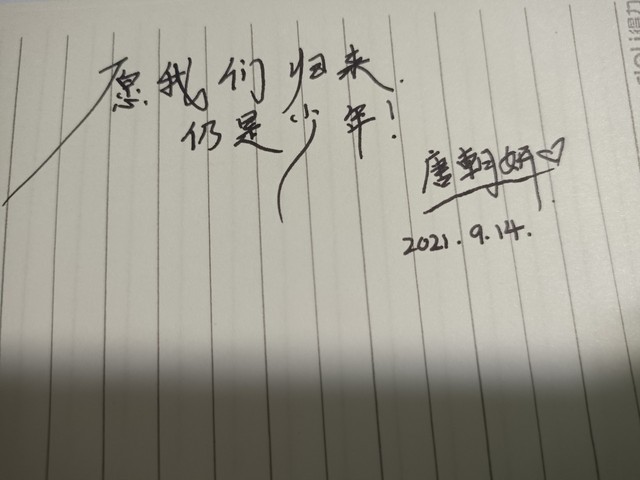 愿我们归来.
仍是少年!
唐朝妍♡
2021.9.14.
得力